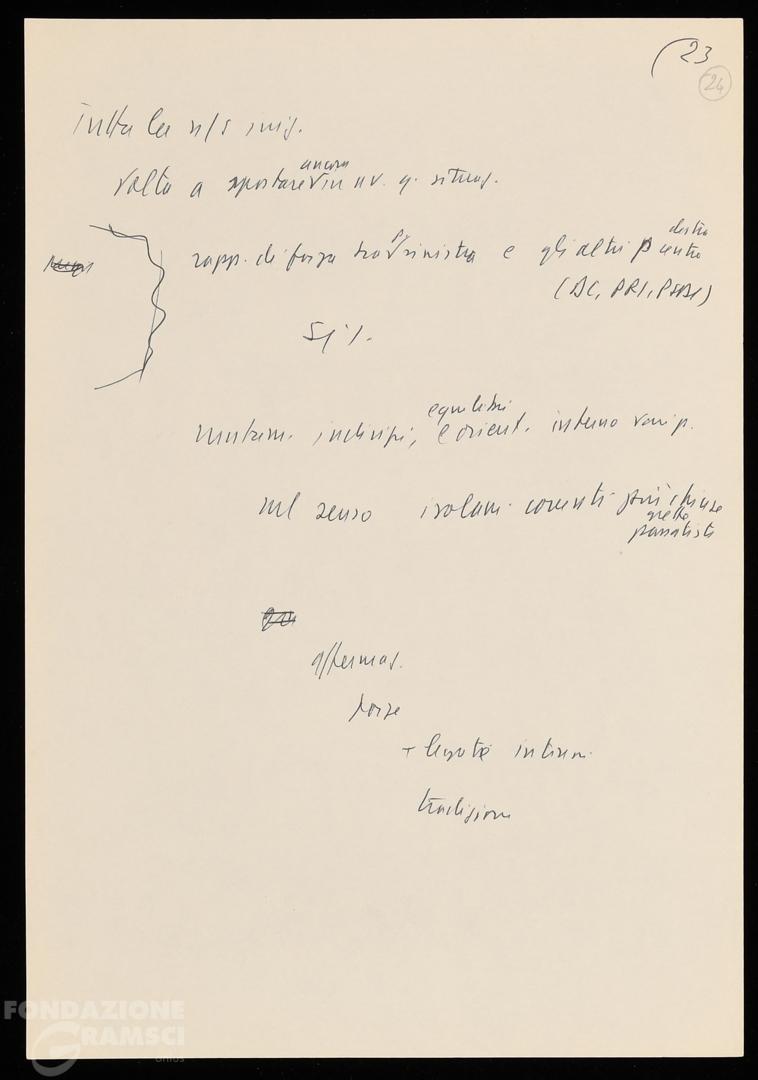 (23
24
Tutta la n/s iniz.
volta a spostare ancora in av. q. situaz.
rapp. di forza tra p. sinistra e gli altri p centro destra
(DC, PRI, PSDI)
Mutam. indirizzi, equilibri e orient. interno vari p.
nel senso isolam. correnti più chiuse
grette
passatiste
affermaz.
forze
+ legate
tradizioni
FONDAZIONE
GRAMSCI
onlus